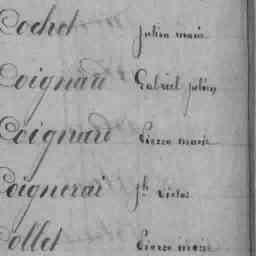 Cochet Julien marie
Coignard Gabriel julien
Coignard Pierre marie
Coignerai Jh victor
Collet Pierre marie